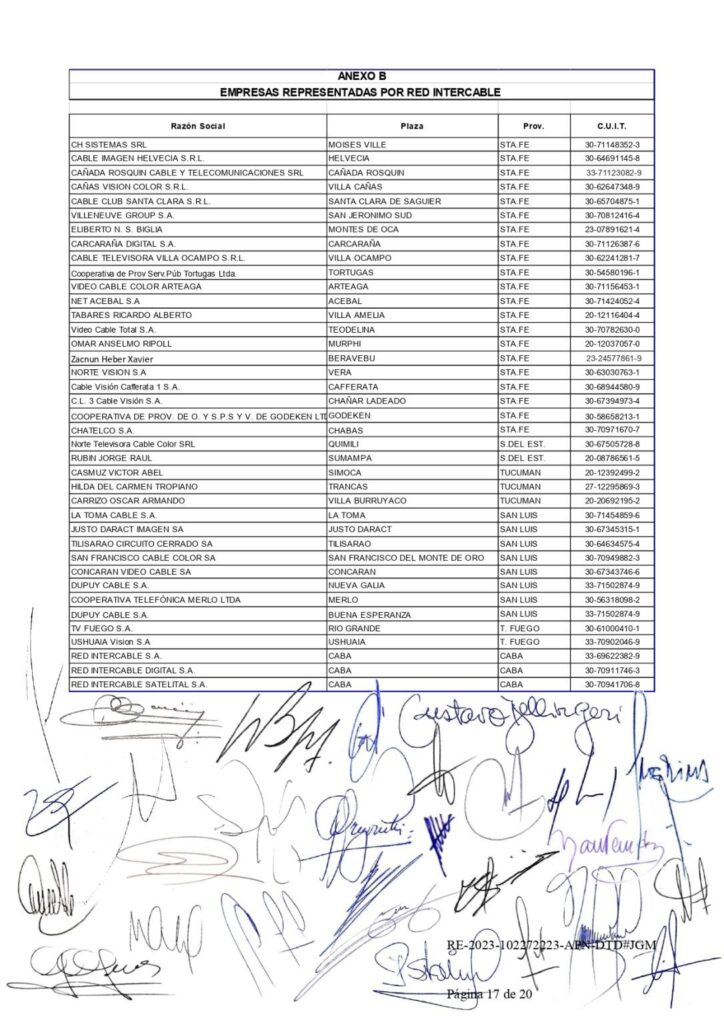 ANEXO B
EMPRESAS REPRESENTADAS POR RED INTERCABLE
Razón Social Plaza Prov. C.U.I.T.
CH SISTEMAS SRL MOISES VILLE STA.FE 30-71148352-3
CABLE IMAGEN HELVECIA S.R.L. HELVECIA STA.FE 30-64691145-8
CAÑADA ROSQUIN CABLE Y TELECOMUNICACIONES SRL CAÑADA ROSQUIN STA.FE 33-71123082-9
CAÑAS VISION COLOR S.R.L. VILLA CAÑAS STA.FE 30-62647348-9
CABLE CLUB SANTA CLARA S.R.L. SANTA CLARA DE SAGUIER STA.FE 30-65704875-1
VILLENEUVE GROUP S.A. SAN JERONIMO SUD STA.FE 30-70812416-4
ELIBERTO N. S. BIGLIA MONTES DE OCA STA.FE 23-07891621-4
CARCARAÑA DIGITAL S.A. CARCARAÑA STA.FE 30-71126387-6
CABLE TELEVISORA VILLA OCAMPO S.R.L. VILLA OCAMPO STA.FE 30-62241281-7
Cooperativa de Prov Serv.Púb Tortugas Ltda. TORTUGAS STA.FE 30-54580196-1
VIDEO CABLE COLOR ARTEAGA ARTEAGA STA.FE 30-71156453-1
NET ACEBAL S.A ACEBAL STA.FE 30-71424052-4
TABARES RICARDO ALBERTO VILLA AMELIA STA.FE 20-12116404-4
Video Cable Total S.A. TEODELINA STA.FE 30-70782630-0
OMAR ANSELMO RIPOLL MURPHI STA.FE 20-12037057-0
Zacnun Heber Xavier BERAVEBU STA.FE 23-24577861-9
NORTE VISION S.A VERA STA.FE 30-63030763-1
Cable Visión Cafferata 1 S.A. CAFFERATA STA.FE 30-68944580-9
C.L. 3 Cable Visión S.A. CHAÑAR LADEADO STA.FE 30-67394973-4
COOPERATIVA DE PROV. DE O. Y S.P.S Y V. DE GODEKEN LTD GODEKEN STA.FE 30-58658213-1
CHATELCO S.A. CHABAS STA.FE 30-70971670-7
Norte Televisora Cable Color SRL QUIMILI S.DEL EST. 30-67505728-8
RUBIN JORGE RAUL SUMAMPA S.DEL EST. 20-08786561-5
CASMUZ VICTOR ABEL SIMOCA TUCUMAN 20-12392499-2
HILDA DEL CARMEN TROPIANO TRANCAS TUCUMAN 27-12295869-3
CARRIZO OSCAR ARMANDO VILLA BURRUYACO TUCUMAN 20-20692195-2
LA TOMA CABLE S.A. LA TOMA SAN LUIS 30-71454859-6
JUSTO DARACT IMAGEN SA JUSTO DARACT SAN LUIS 30-67345315-1
TILISARAO CIRCUITO CERRADO SA TILISARAO SAN LUIS 30-64634575-4
SAN FRANCISCO CABLE COLOR SA SAN FRANCISCO DEL MONTE DE ORO SAN LUIS 30-70949882-3
CONCARAN VIDEO CABLE SA CONCARAN SAN LUIS 30-67343746-6
DUPUY CABLE S.A. NUEVA GALIA SAN LUIS 33-71502874-9
COOPERATIVA TELEFÓNICA MERLO LTDA MERLO SAN LUIS 30-56318098-2
DUPUY CABLE S.A. BUENA ESPERANZA SAN LUIS 33-71502874-9
TV FUEGO S.A. RIO GRANDE T. FUEGO 30-61000410-1
USHUAIA Vision S.A USHUAIA T. FUEGO 33-70902046-9
RED INTERCABLE S.A. CABA CABA 33-69622382-9
RED INTERCABLE DIGITAL S.A. CABA CABA 30-70911746-3
RED INTERCABLE SATELITAL S.A. CABA CABA 30-70941706-8
Gustavo
RE-2023-102272223-APN-DTD#JGM
Página 17 de 20